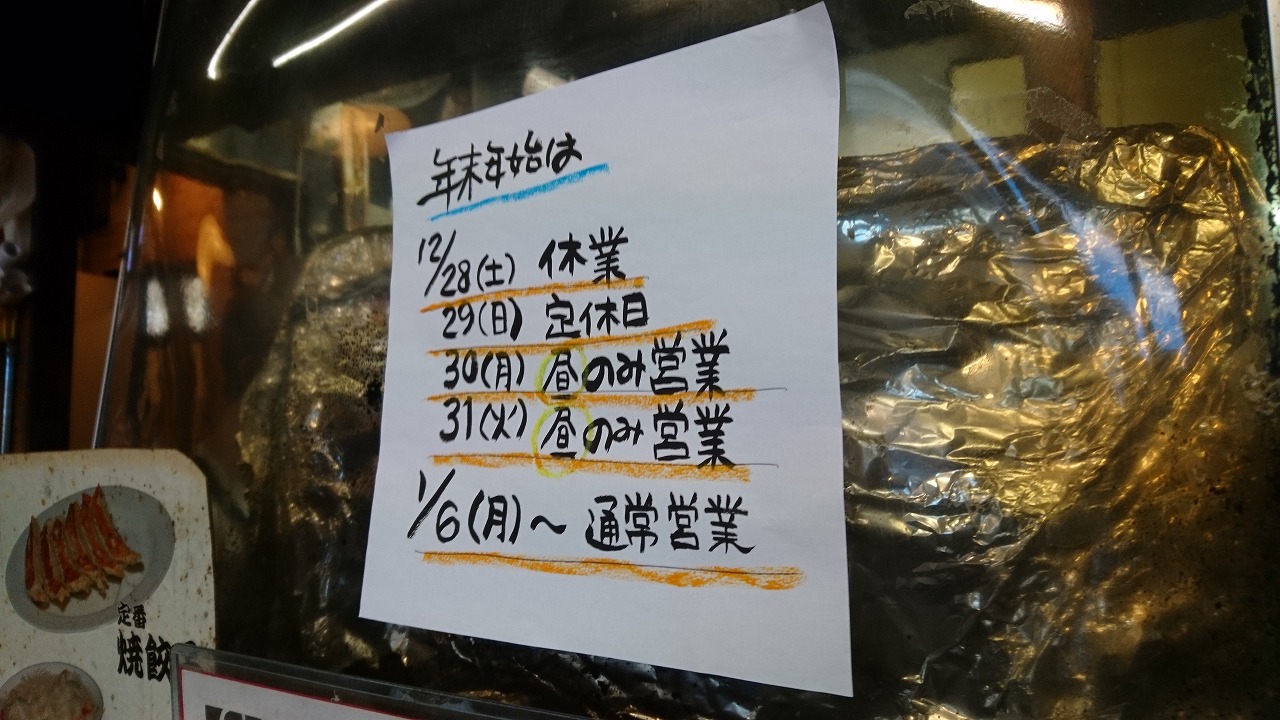 年末年始は
12/28(土) 休業
29(日) 定休日
30(月) 昼のみ営業
31(火) 昼のみ営業
1/6(月)〜 通常営業
定番
焼餃